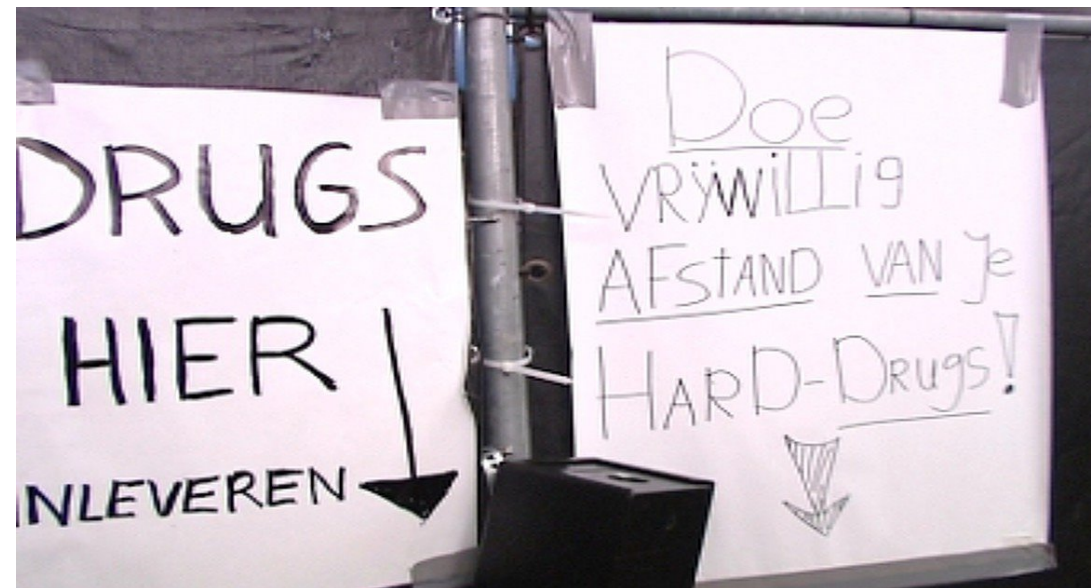 DRUGS
HIER
INLEVEREN
Doe
VRÿWiLLig
AFStAND VAN Je
HARD-DRugs!